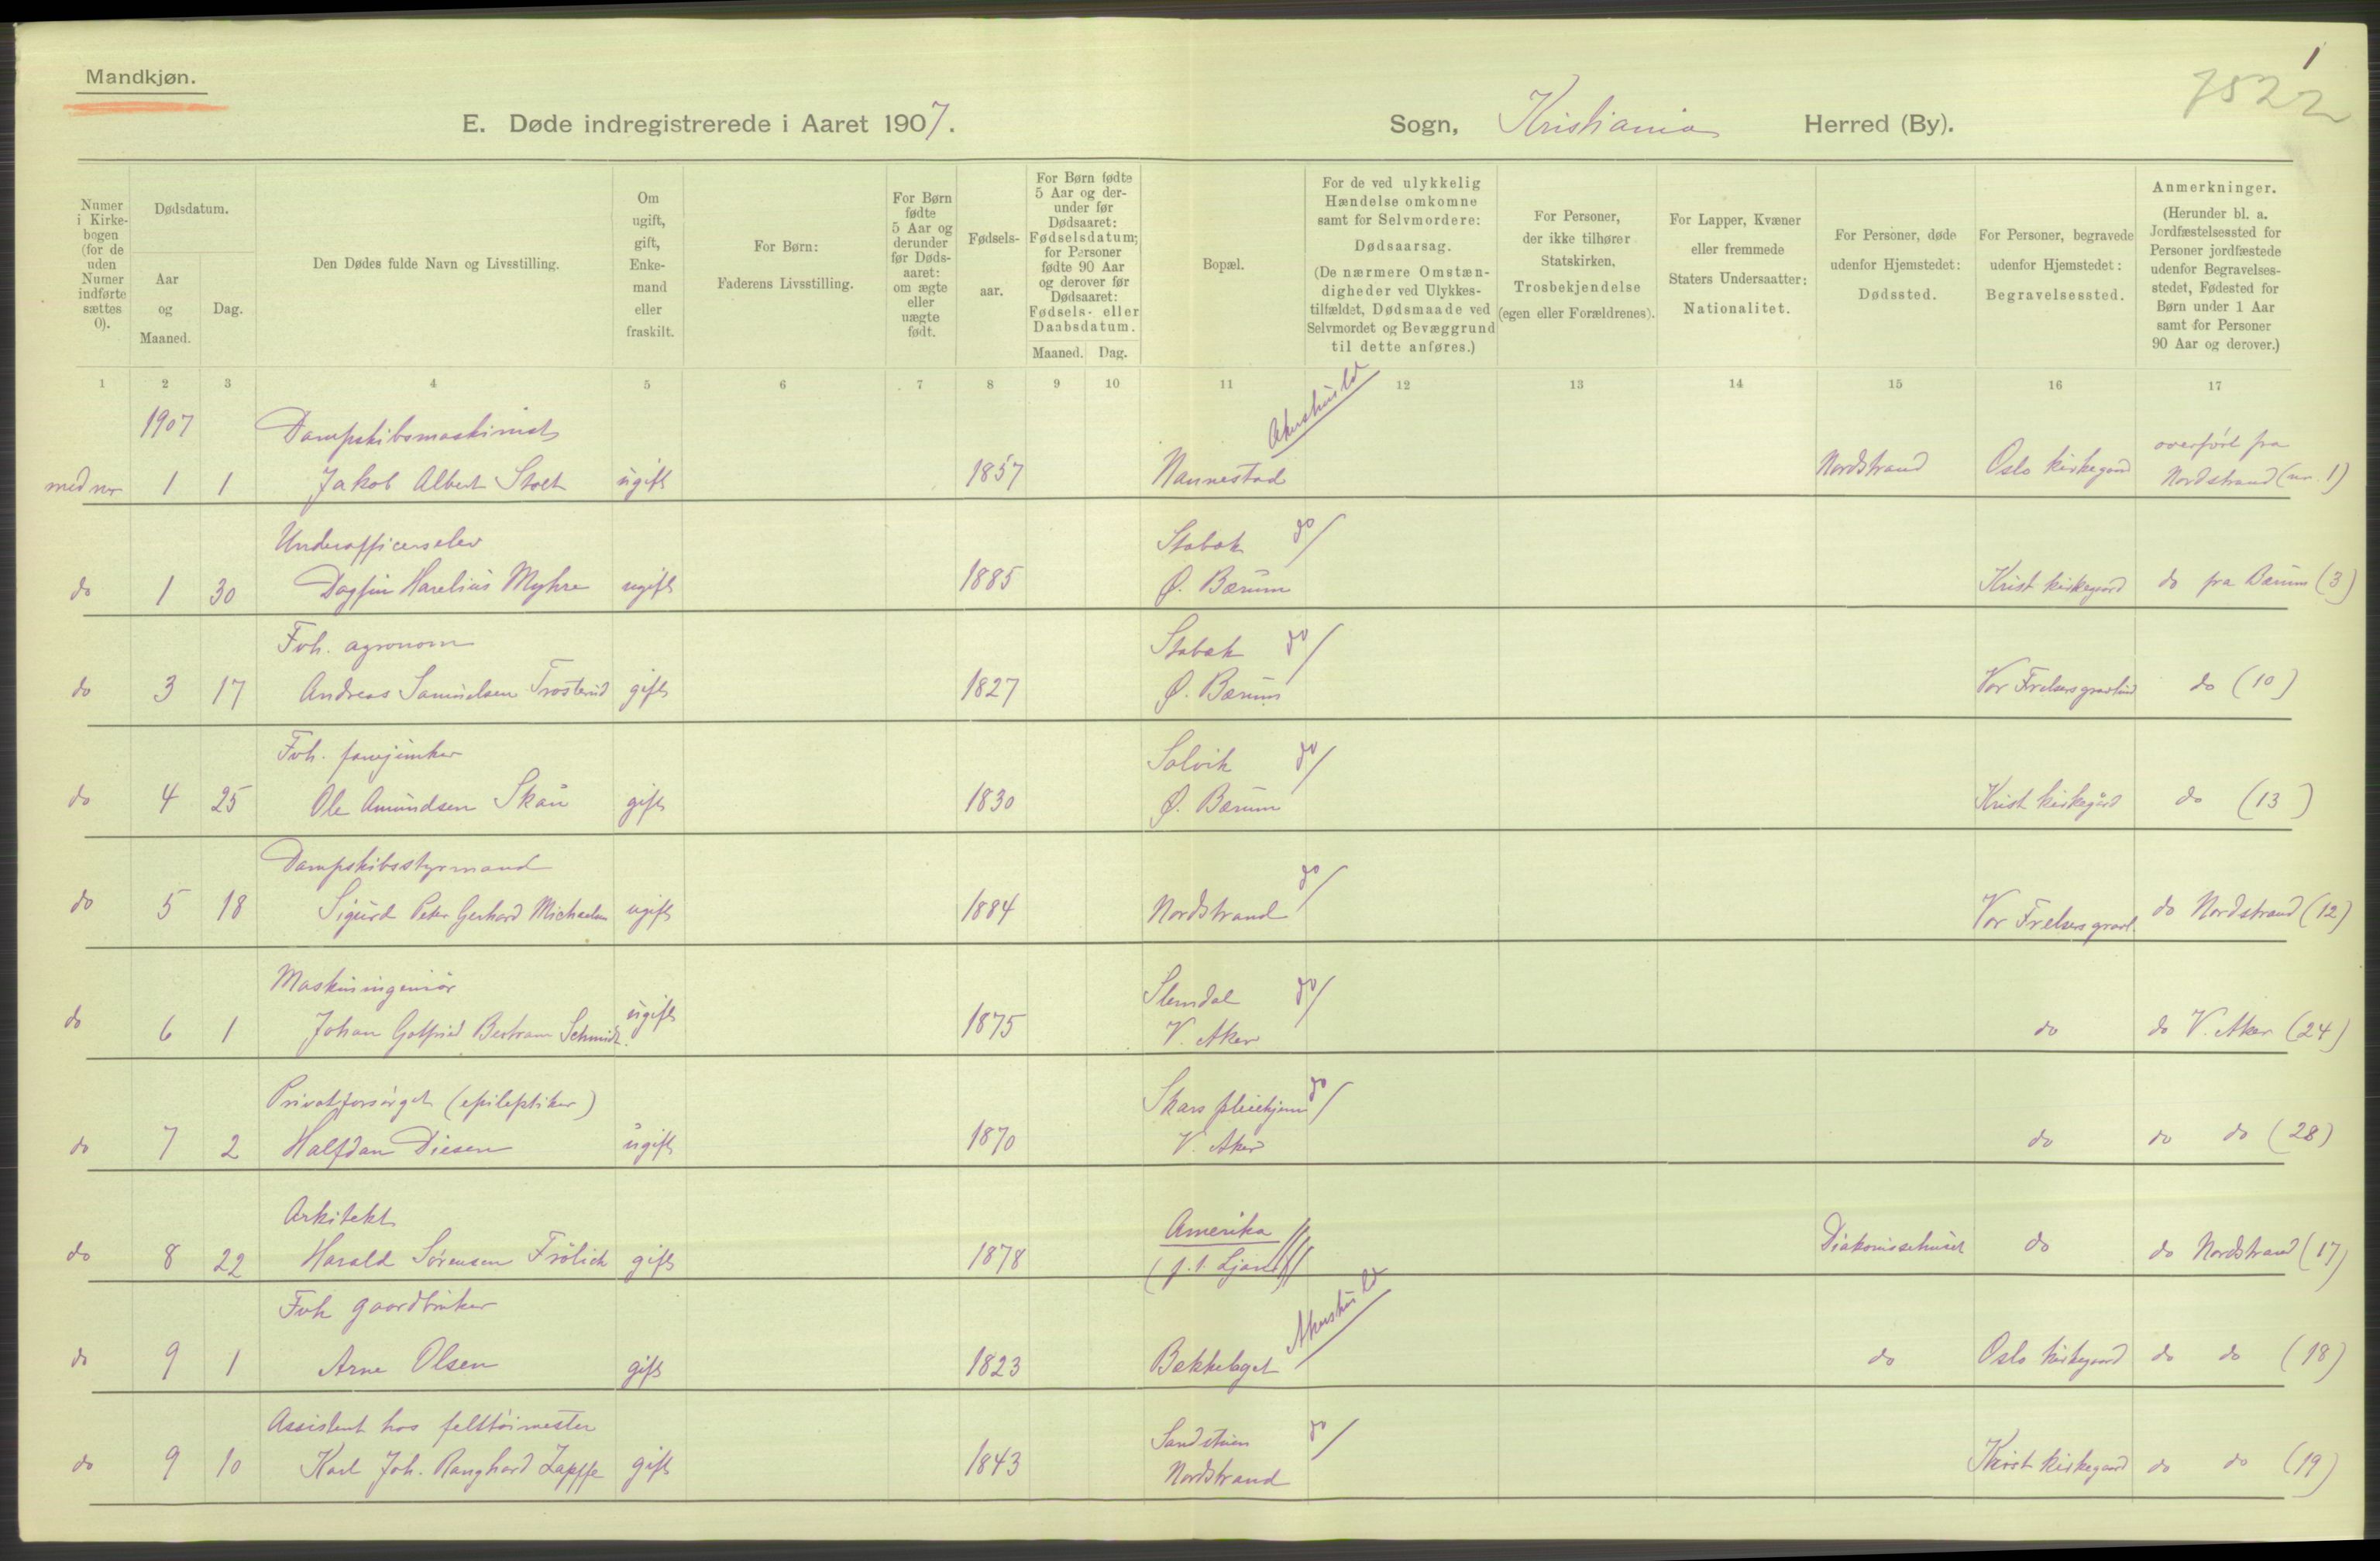 Mandkjøn.
1
7522
E. Døde indregistrerede i Aaret 1907. Sogn, Kristiania Herred (By).
Numer i Kirkebogen (for de uden Numer indførte sættes 0).
Dødsdatum.
Aar og Maaned.
Dag.
Den Dødes fulde Navn og Livsstilling.
Om ugift, gift, Enkemand eller fraskilt.
For Børn: Faderens Livsstilling.
For Børn fødte 5 Aar og derunder før Dødsaaret: om ægte eller uægte født.
Fødselsaar.
For Børn fødte 5 Aar og derunder før Dødsaaret: Fødselsdatum; for Personer fødte 90 Aar og derover før Dødsaaret: Fødsels- eller Daabsdatum.
Maaned. Dag.
Bopæl.
For de ved ulykkelig Hændelse omkomne samt for Selvmordere: Dødsaarsag. (De nærmere Omstændigheder ved Ulykkestilfældet, Dødsmaade ved Selvmordet og Bevæggrund til dette anføres.)
For Personer, der ikke tilhører Statskirken, Trosbekjendelse (egen eller Forældrenes).
For Lapper, Kvæner eller fremmede Staters Undersaatter: Nationalitet.
For Personer, døde udenfor Hjemstedet: Dødssted.
For Personer, begravede udenfor Hjemstedet: Begravelsessted.
Anmerkninger. (Herunder bl. a. Jordfæstelsessted for Personer jordfæstede udenfor Begravelsesstedet, Fødested for Børn under 1 Aar samt for Personer 90 Aar og derover.)
1 2 3 4 5 6 7 8 9 10 11 12 13 14 15 16 17
1907 Dampskibsmaskinist overført fra
1 1 Jakob Albert ugift 1857 Nannestad Nordstrand Oslo kirkegaard Nordstrand (nr. 1)
Underofficerselev Stabæk do
do 1 30 Dagfin Myhre ugift 1885 Ø. Bærum Krist kirkegaard do fra Bærum (3)
Fvh. agronom Stabæk do
do 3 17 Andreas Samuelsen Trosterud gift 1827 Ø. Bærum Vor Frelsers gravlund do (10)
Fvh. fanejunker Solvik do
do 4 25 Ole Amundsen Skau gift 1830 Ø. Bærum Krist kirkegård do (13)
Dampskibsstyrmand do
do 5 18 Sigurd Peter Gerhard Michaelsen ugift 1884 Nordstrand Vor Frelsers gravl. do Nordstrand (12)
Maskiningeniør Slemdal do
do 6 1 Johan Gotfried Bertram Schmidt. ugift 1875 V. Aker do do V. Aker (24)
Privatforsørget (epileptiker) Skars pleiehjem do
do 7 2 Halfdan Diesen ugift 1870 V. Aker do do do (28)
Arkitekt Amerika
do 8 22 Harald Sørensen Frölich gift 1878 (f. t. Ljan) Diakonissehuset do do Nordstrand (17)
Fvh gaardbruker
do 9 1 Arne Olsen gift 1823 Bækkelaget do Oslo kirkegaard do do (18)
Assistent hos felttøimester do
do 9 10 Karl Joh. Zapffe gift 1843 Nordstrand Krist kirkegaard do do (19)